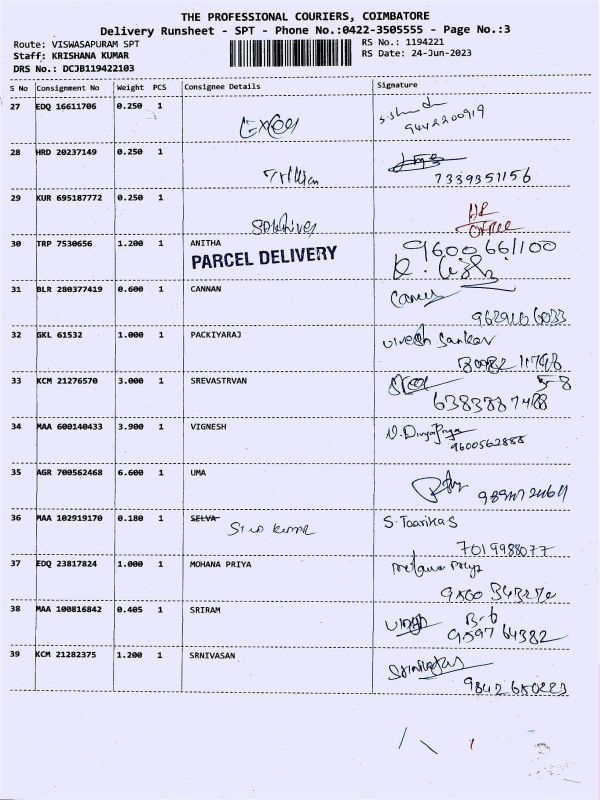 THE PROFESSIONAL COURIERS, COIMBATORE
Delivery Runsheet - SPT - Phone No.:0422-3505555 - Page No.:3
Route: VISWASAPURAM SPT
Staff: KRISHANA KUMAR
DRS No.: DCJB119422103
RS No.: 1194221
RS Date: 24-Jun-2023
S No Consignment No Weight PCS Consignee Details Signature
27 EDQ 16611706 0.250 1
9442200919
28 HRD 20237149 0.250 1
Trillian
7339351156
29 KUR 695187772 0.250 1
Office
30 TRP 7530656 1.200 1 ANITHA
PARCEL DELIVERY
9600661100
31 BLR 280377419 0.600 1 CANNAN
32 GKL 61532 1.000 1 PACKIYARAJ
33 KCM 21276570 3.000 1 SREVASTRVAN
34 MAA 600140433 3.900 1 VIGNESH
9600562888
35 AGR 700562468 6.600 1 UMA
36 MAA 102919170 0.180 1 SELVA
Siva kumar
S. Taarika S
7019988077
37 EDQ 23817824 1.000 1 MOHANA PRIYA
38 MAA 100816842 0.405 1 SRIRAM
9597 64382
39 KCM 21282375 1.200 1 SRNIVASAN
9842 680223